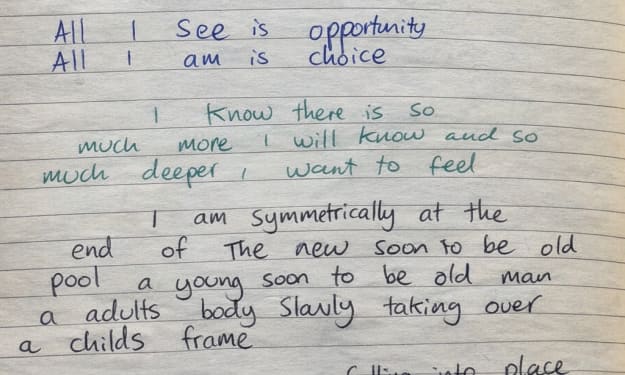 All I See is opportunity
All I am is choice
I Know there is so
much more I will know and so
much deeper I want to feel
I am symmetrically at the
end of The new soon to be old
pool a young soon to be old man
a adults body Slavly taking over
a childs frame
into place